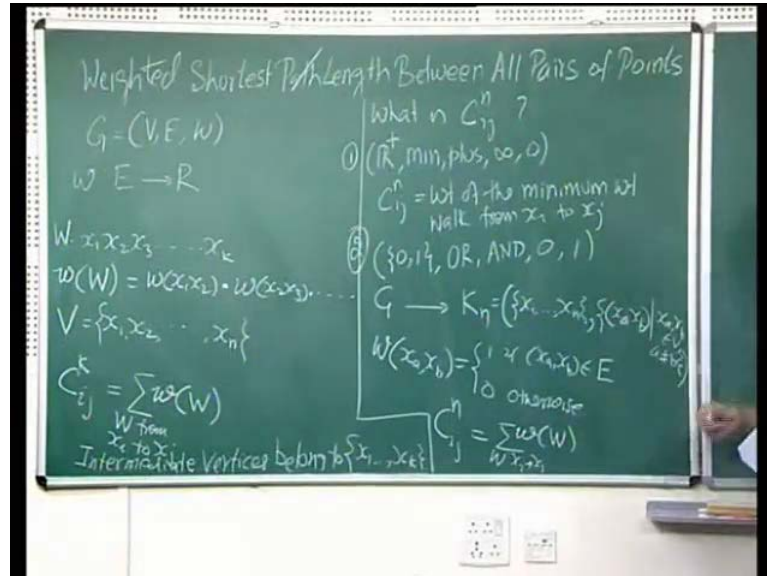 Weighted Shortest Path Length Between All Pairs of Points
G = (V, E, W)
w E → R
W. x₁ x₂ x₃ ..... x_k
w(W) = w(x₁x₂) • w(x₂x₃) • ....
V = {x₁, x₂, ..., x_n}
C_{ij}^k = ∑ w(W)
W from
x_i to x_j
Intermediate Vertices belong to {x₁..., x_k}
What is C_{ij}^n ?
① (R⁺, min, plus, ∞, 0)
C_{ij}^n = wt of the minimum wt
walk from x_i to x_j
② ({0,1}, OR, AND, 0, 1)
G → K_n = ({x₁...x_n}, {(x_a x_b) |
w(x_a, x_b) = { 1 if (x_a, x_b) ∈ E
0 otherwise
C_{ij}^n = ∑ w(W)
W x_i → x_j